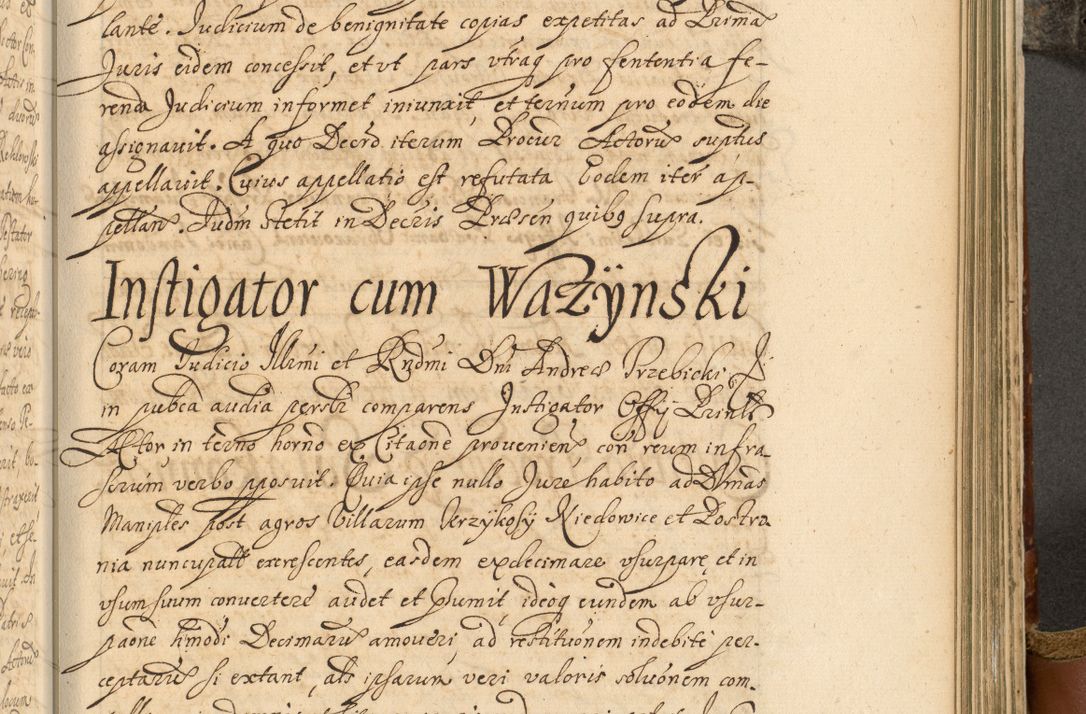 lante. Judicium de benignitate copias expetitas ad Prima
Juris eidem concessit, et vt pars vtraq pro sententia fe-
renda Judicium informet iniunxit, et ternum pro eodem die
assignauit. A quo Decrd iterum Procur Actorus suptus
appellauit. Cuius appellatio est refutata Eodem iter áp-
pellan. Judm stetit in Decris Præsen quibq supra.
Instigator cum Wazÿnski
Coram Judicio Illrmi et Rndmi Dni Andreæ Trzebicki
in pubca audia persbr comparens Instigator Offij
Actor in terno horno ex Citaone provenien, con reum infra
scrum verbo pposuit. Quia ipse nullo Jure habito ad Dmas
Maniples post agros Villarum Krzykosy Niedowice et Postro
nia nuncupatt excrescentes, easdem exdecimare vsurpare, et in
vsum suum convertere audet et psumit, ideoq eundem ab vsur-
paone hmodi Decimaru amoueri, ad restituonem indebite per-
ceptaru si extant, als ipsarum veri valoris soluonem com-